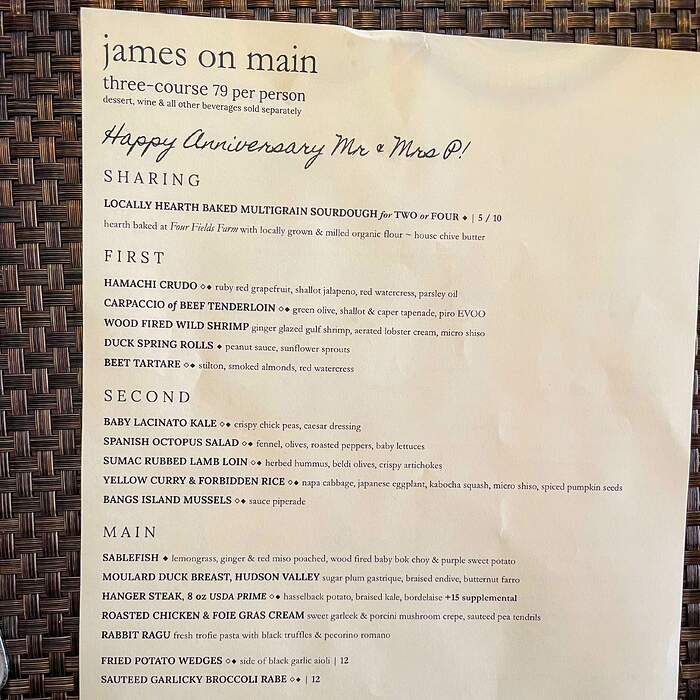 james on main
three-course 79 per person
dessert, wine & all other beverages sold separately
Happy Anniversary Mr & Mrs P!
SHARING
LOCALLY HEARTH BAKED MULTIGRAIN SOURDOUGH for TWO or FOUR ◆ | 5 / 10
hearth baked at Four Fields Farm with locally grown & milled organic flour ~ house chive butter
FIRST
HAMACHI CRUDO ◇◆ ruby red grapefruit, shallot jalapeno, red watercress, parsley oil
CARPACCIO of BEEF TENDERLOIN ◇◆ green olive, shallot & caper tapenade, piro EVOO
WOOD FIRED WILD SHRIMP ginger glazed gulf shrimp, aerated lobster cream, micro shiso
DUCK SPRING ROLLS ◆ peanut sauce, sunflower sprouts
BEET TARTARE ◇◆ stilton, smoked almonds, red watercress
SECOND
BABY LACINATO KALE ◇◆ crispy chick peas, caesar dressing
SPANISH OCTOPUS SALAD ◇◆ fennel, olives, roasted peppers, baby lettuces
SUMAC RUBBED LAMB LOIN ◇◆ herbed hummus, beldi olives, crispy artichokes
YELLOW CURRY & FORBIDDEN RICE ◇◆ napa cabbage, japanese eggplant, kabocha squash, micro shiso, spiced pumpkin seeds
BANGS ISLAND MUSSELS ◇◆ sauce piperade
MAIN
SABLEFISH ◆ lemongrass, ginger & red miso poached, wood fired baby bok choy & purple sweet potato
MOULARD DUCK BREAST, HUDSON VALLEY sugar plum gastrique, braised endive, butternut farro
HANGER STEAK, 8 oz USDA PRIME ◇◆ hasselback potato, braised kale, bordelaise +15 supplemental
ROASTED CHICKEN & FOIE GRAS CREAM sweet garleek & porcini mushroom crepe, sauteed pea tendrils
RABBIT RAGU fresh trofie pasta with black truffles & pecorino romano
FRIED POTATO WEDGES ◇◆ side of black garlic aioli | 12
SAUTEED GARLICKY BROCCOLI RABE ◇◆ | 12